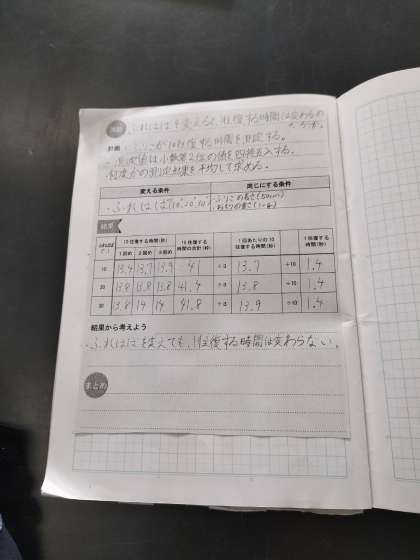 問題 ・ふれはばを変えると、1往復する時間は変わるの
だろうか。
計画 ・ふりこが10往復する時間を測定する。
・測定値は小数第2位の値を四捨五入する。
・何度かの測定結果を平均して求める。
変える条件 同じにする条件
・ふれはば(10°,20°,30°) ・ふりこの長さ(50cm)
・おもりの重さ
結果
ふれはば(°) 10往復する時間(秒) 10往復する時間の合計(秒) 1回あたりの10往復する時間(秒) 1往復する時間(秒)
1回め 2回め 3回め
10 13.4 13.7 13.9 41 ÷3 13.7 ÷10 1.4
20 13.8 13.8 13.8 41.4 ÷3 13.8 ÷10 1.4
30 13.8 14 14 41.8 ÷3 13.9 ÷10 1.4
結果から考えよう
・ふれはばを変えても、1往復する時間は変わらない。
まとめ